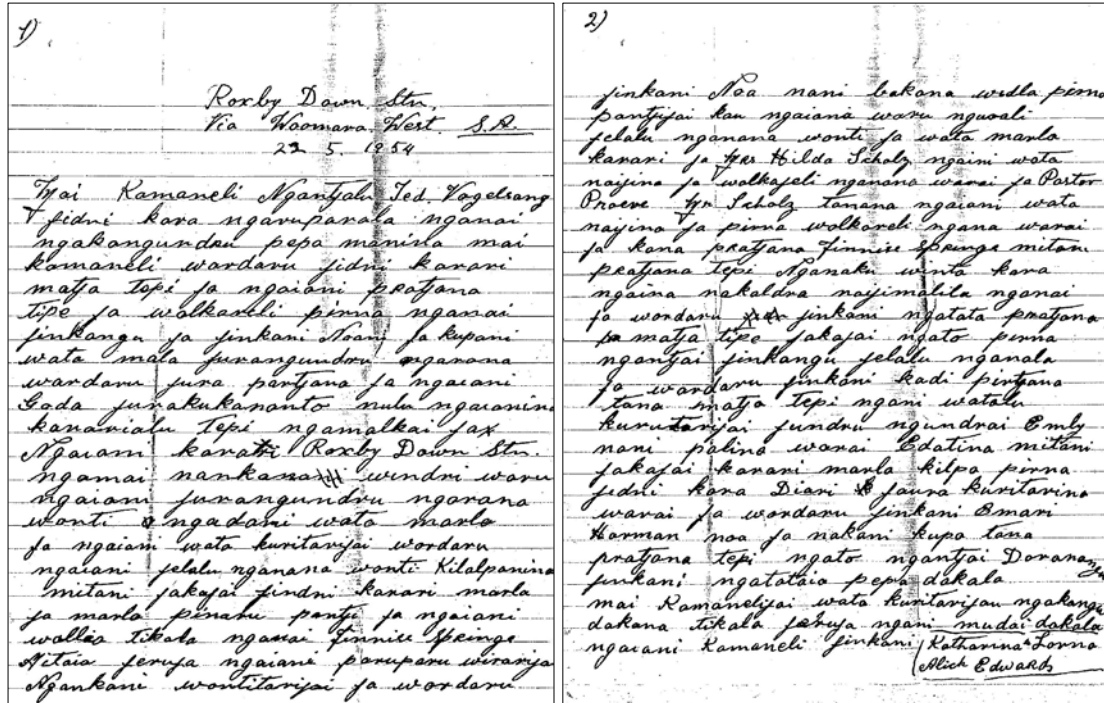 1)
Roxby Down. Stn.
Via Woomara West. S.A.
22 5. 1954
Ngai Kamaneli Ngantjalu Ted. Vogelsang
jidni kara ngaruparala nganai
ngakangundru pepa manina mai
kamaneli wardaru jidni karari
matja tepi ja ngaiani pratjana
tipe ja wolkareli pirna nganai
jinkangu ja jinkani Noani ja kupani
wata mala jurangundru ngarana
wardaru jura partjana ja ngaiani
Goda jurakukananto nulu ngaianina
kanarialu tepi ngamalkai ja
Ngaiani karari Roxby Down Stn.
ngamai nankana windri waru
ngaiani jurangundru ngarana
wonti ngadani wata marla
ja ngaiani wata kuritarijai wordaru
ngaiani jelalu nganana wonti Kilalpanina
mitani jakajai jindni karari marla
ja marla pinaru pantji ja ngaiani
wallia tikala nganai Finnise Springe
Aitaia jeruja ngaiani paruparu wirarija
Ngankani wontitarijai ja wordaru
2)
jinkani Noa nani bakana widla pirna
pantjijai kau ngaiana waru nguali
jelalu nganana wonti ja wata marla
karari ja Mrs Hilda Scholz ngaini wata
naijina ja wolkajeli nganana warai ja Pastor
Proeve Mr Scholz tanana ngaiani wata
naijina ja pirna wolkareli ngana warai
ja kana pratjana Finnise Springe mitani
pratjana tepi Nganaku winta kara
ngaina nakaldra najimalila nganai
ja wordaru jinkani ngatata pratjana
matja tipe jakajai ngato pirna
ngantjai jinkangu jelalu nganala
ja wardaru jinkani kadi pirtjana
tana matja tepi ngani watalu
kuritarijai jundru ngundrai Emly
nani palina warai Edatina mitani
jakajai karari marla kilpa pirna
jidni kara Diari jaura kuritarina
warai ja wordaru jinkani Emari
Harman noa ja nakani kupa tana
pratjana tepi ngato ngantjai Doranangu
jinkani ngatataia pepa dakala
mai Kamanelijai wata kuritarijau ngakangu
dakana tikala jeruja ngani mudai dakala
ngaiani Kamaneli jinkani Katharina & Lorna
Alich Edwards